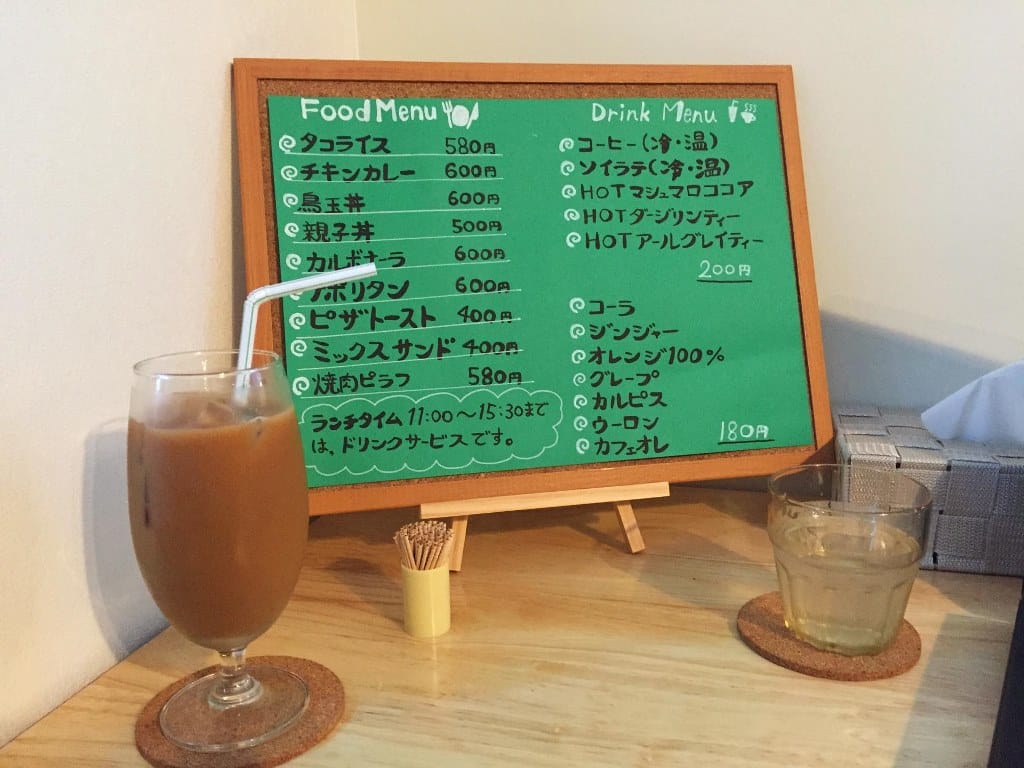 Food Menu
タコライス 580円
チキンカレー 600円
鳥玉丼 600円
親子丼 500円
カルボナーラ 600円
ナポリタン 600円
ピザトースト 400円
ミックスサンド 400円
焼肉ピラフ 580円
ランチタイム 11:00〜15:30まで
は、ドリンクサービスです。
Drink Menu
コーヒー(冷・温)
ソイラテ(冷・温)
HOTマシュマロココア
HOTダージリンティー
HOTアールグレイティー
200円
コーラ
ジンジャー
オレンジ100%
グレープ
カルピス
ウーロン
カフェオレ
180円